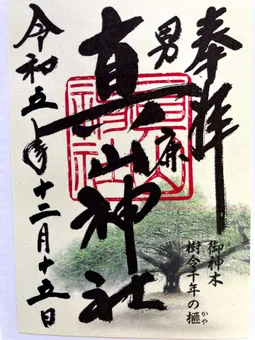 奉拝
男鹿
真山神社
令和五年十二月十五日
御神木
樹令千年の榧
かや